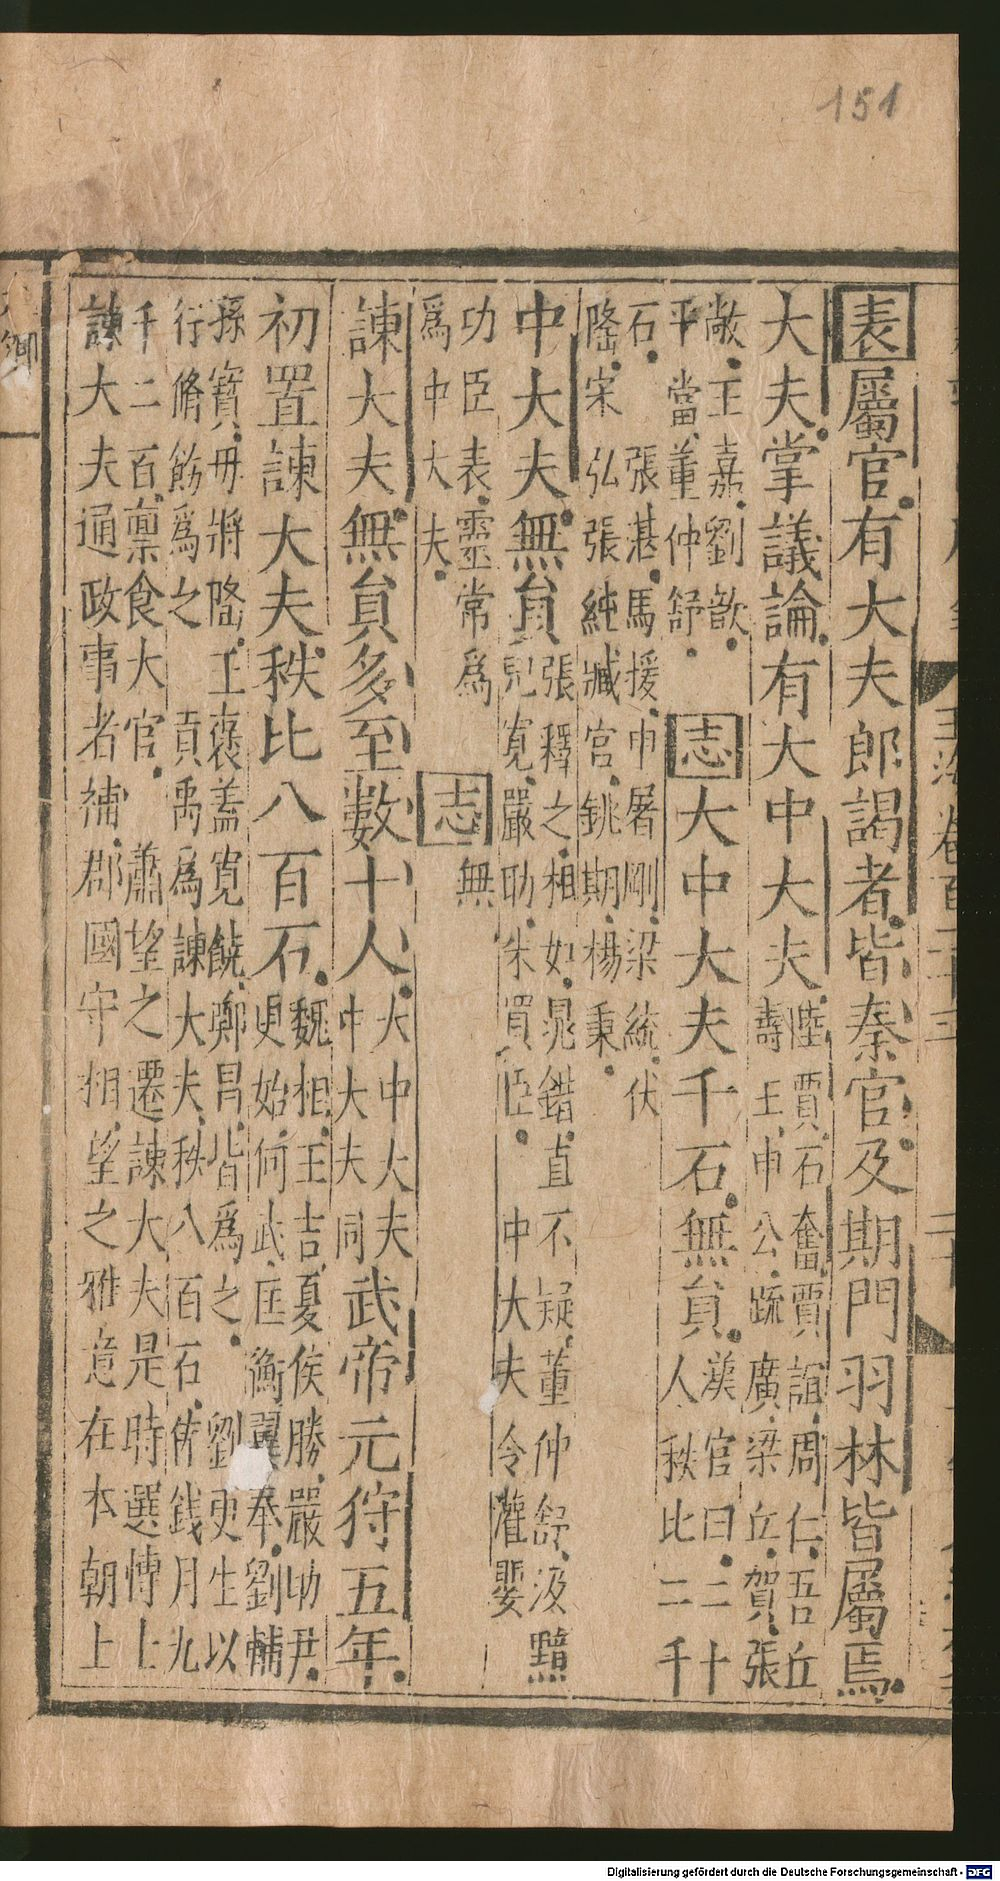 151
玉海卷百二十三
二十
表屬官有大夫郎謁者皆秦官及期門羽林皆屬焉
大夫掌議論有大中大夫陸賈石奮賈誼周仁吾丘
壽王申公疏廣梁丘賀張
敞王嘉劉歆
平當董仲舒
志大中大夫千石無員漢官曰二十
人秩比二千
石張湛馬援申屠剛梁統伏
隆宋弘張純臧宮銚期楊秉
中大夫無員張釋之相如晁錯直不疑董仲舒汲黯
兒寬嚴助朱買臣中大夫令灌嬰
功臣表靈常爲
爲中大夫
志無
諫大夫無員多至數十人大中大夫
中大夫同
武帝元狩五年
初置諫大夫秩比八百石魏相王吉夏侯勝嚴助尹
更始何武匡衡翼奉劉輔
孫寶毋將隆王褒蓋寬饒鄭昌皆爲之劉更生以
行脩飭爲之貢禹爲諫大夫秩八百石俸錢月九
千二百稟食大官蕭望之遷諫大夫是時選博士
諫大夫通政事者補郡國守相望之雅意在本朝上
Digitalisierung gefördert durch die Deutsche Forschungsgemeinschaft - DFG